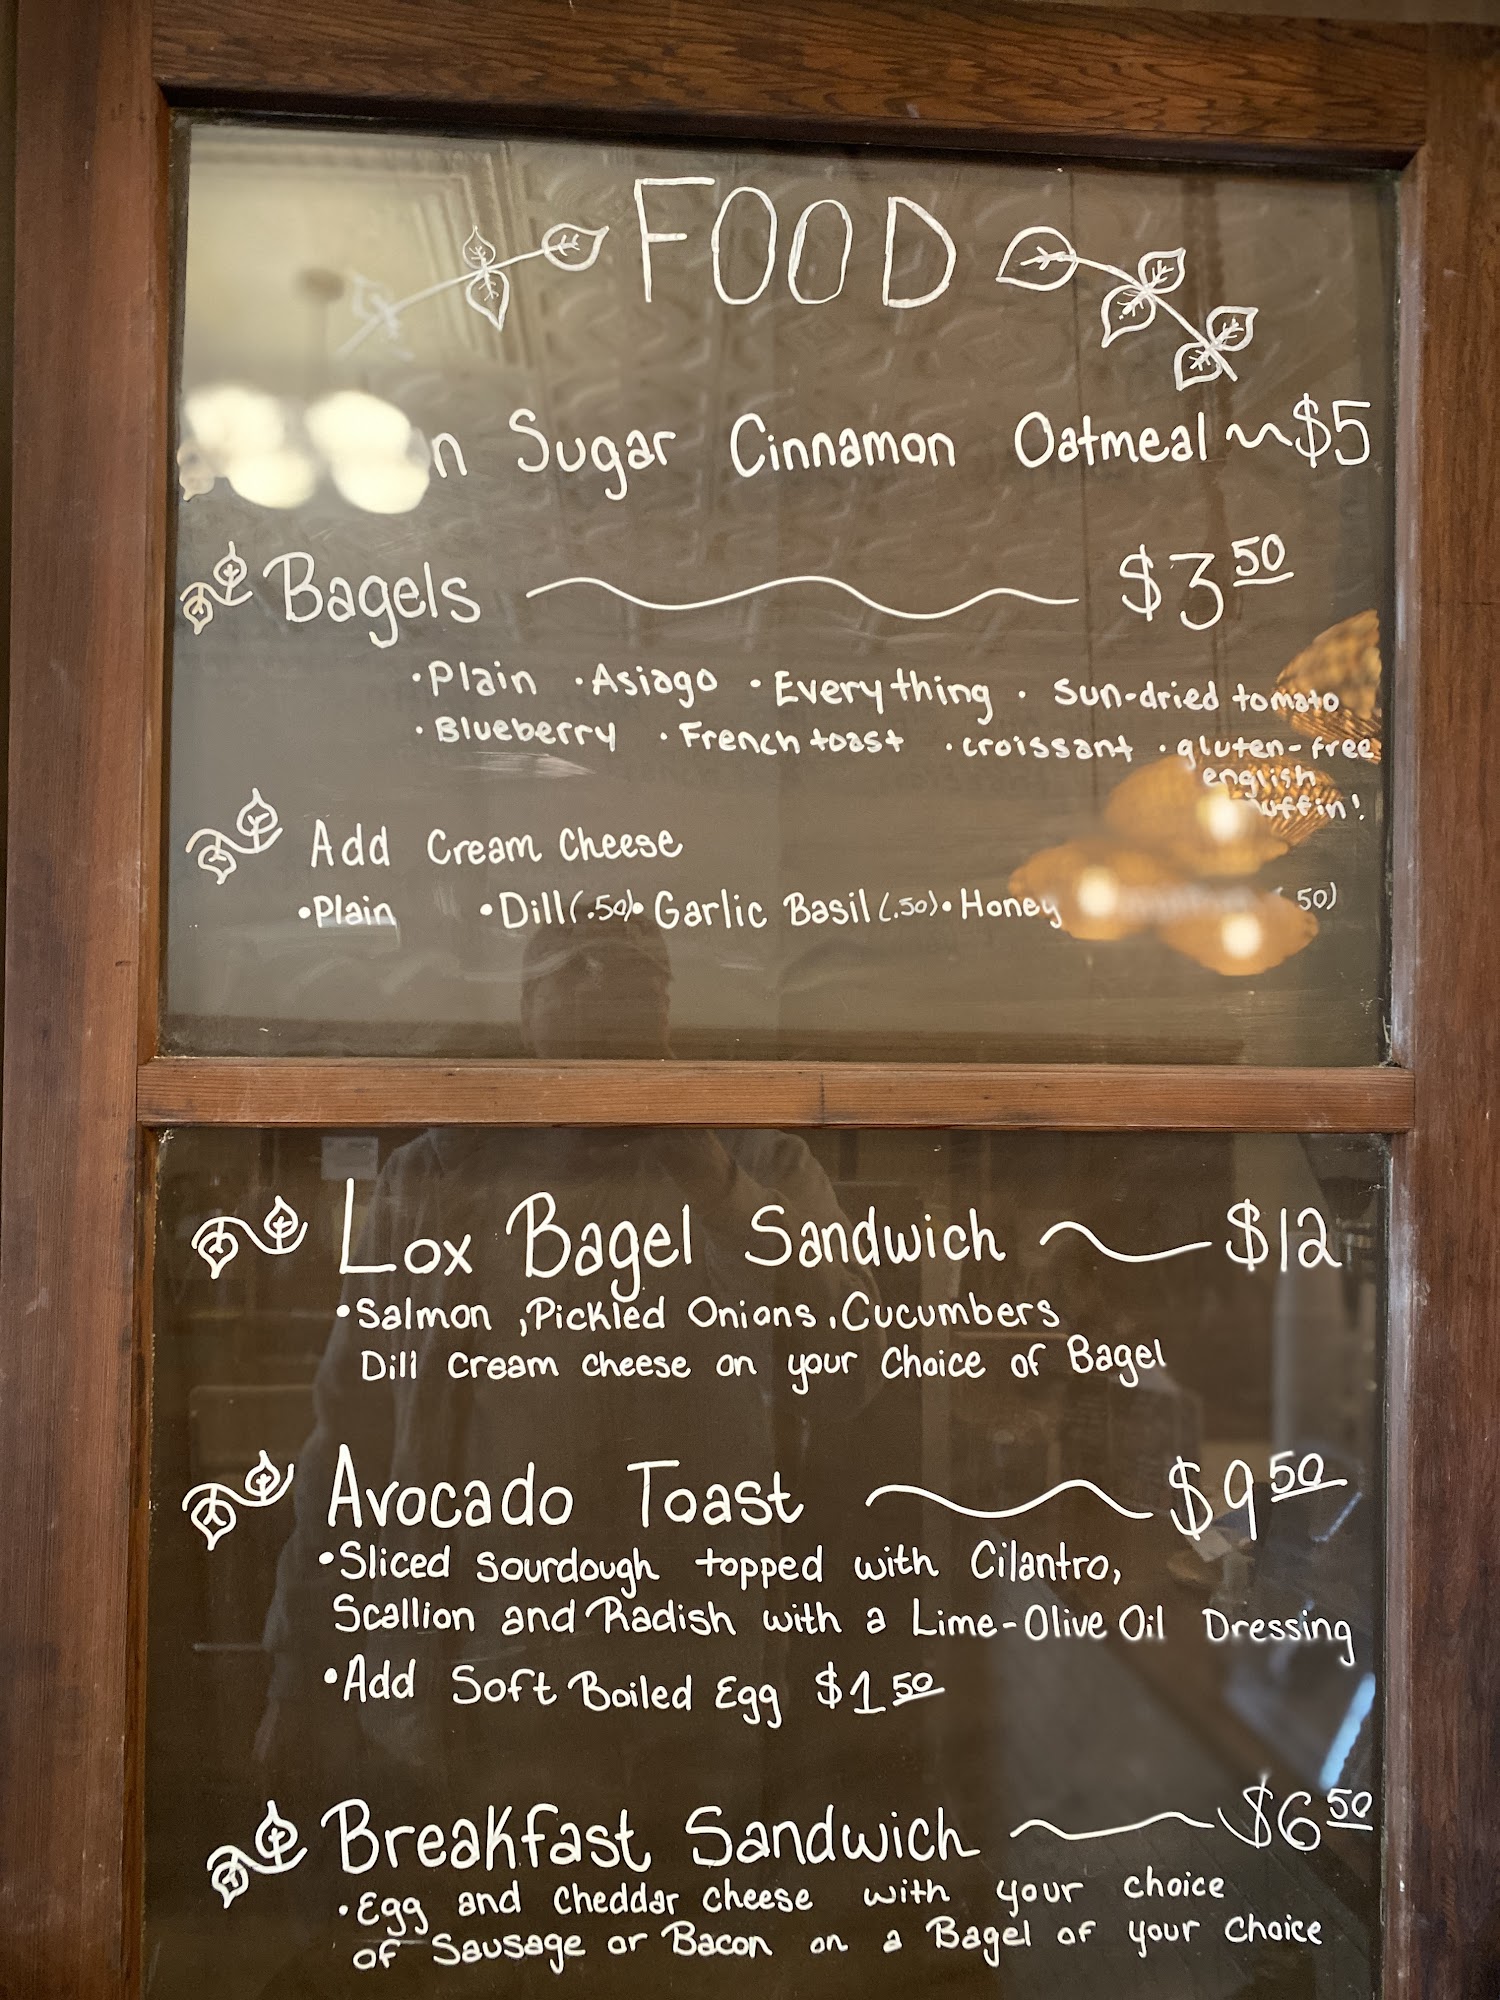 FOOD
Sugar Cinnamon Oatmeal ~ $5
Bagels $3.50
·Plain ·Asiago ·Everything · Sun-dried tomato
·Blueberry ·French toast ·croissant ·gluten-free
english
muffin!
Add Cream Cheese
•Plain •Dill (.50) •Garlic Basil (.50) •Honey .50)
Lox Bagel Sandwich $12
•Salmon, Pickled Onions, Cucumbers
Dill Cream cheese on your Choice of Bagel
Avocado Toast $9.50
•Sliced sourdough topped with Cilantro,
Scallion and Radish with a Lime-Olive Oil Dressing
•Add Soft Boiled Egg $1.50
Breakfast Sandwich $6.50
•Egg and Cheddar cheese with your choice
of Sausage or Bacon on a Bagel of your Choice